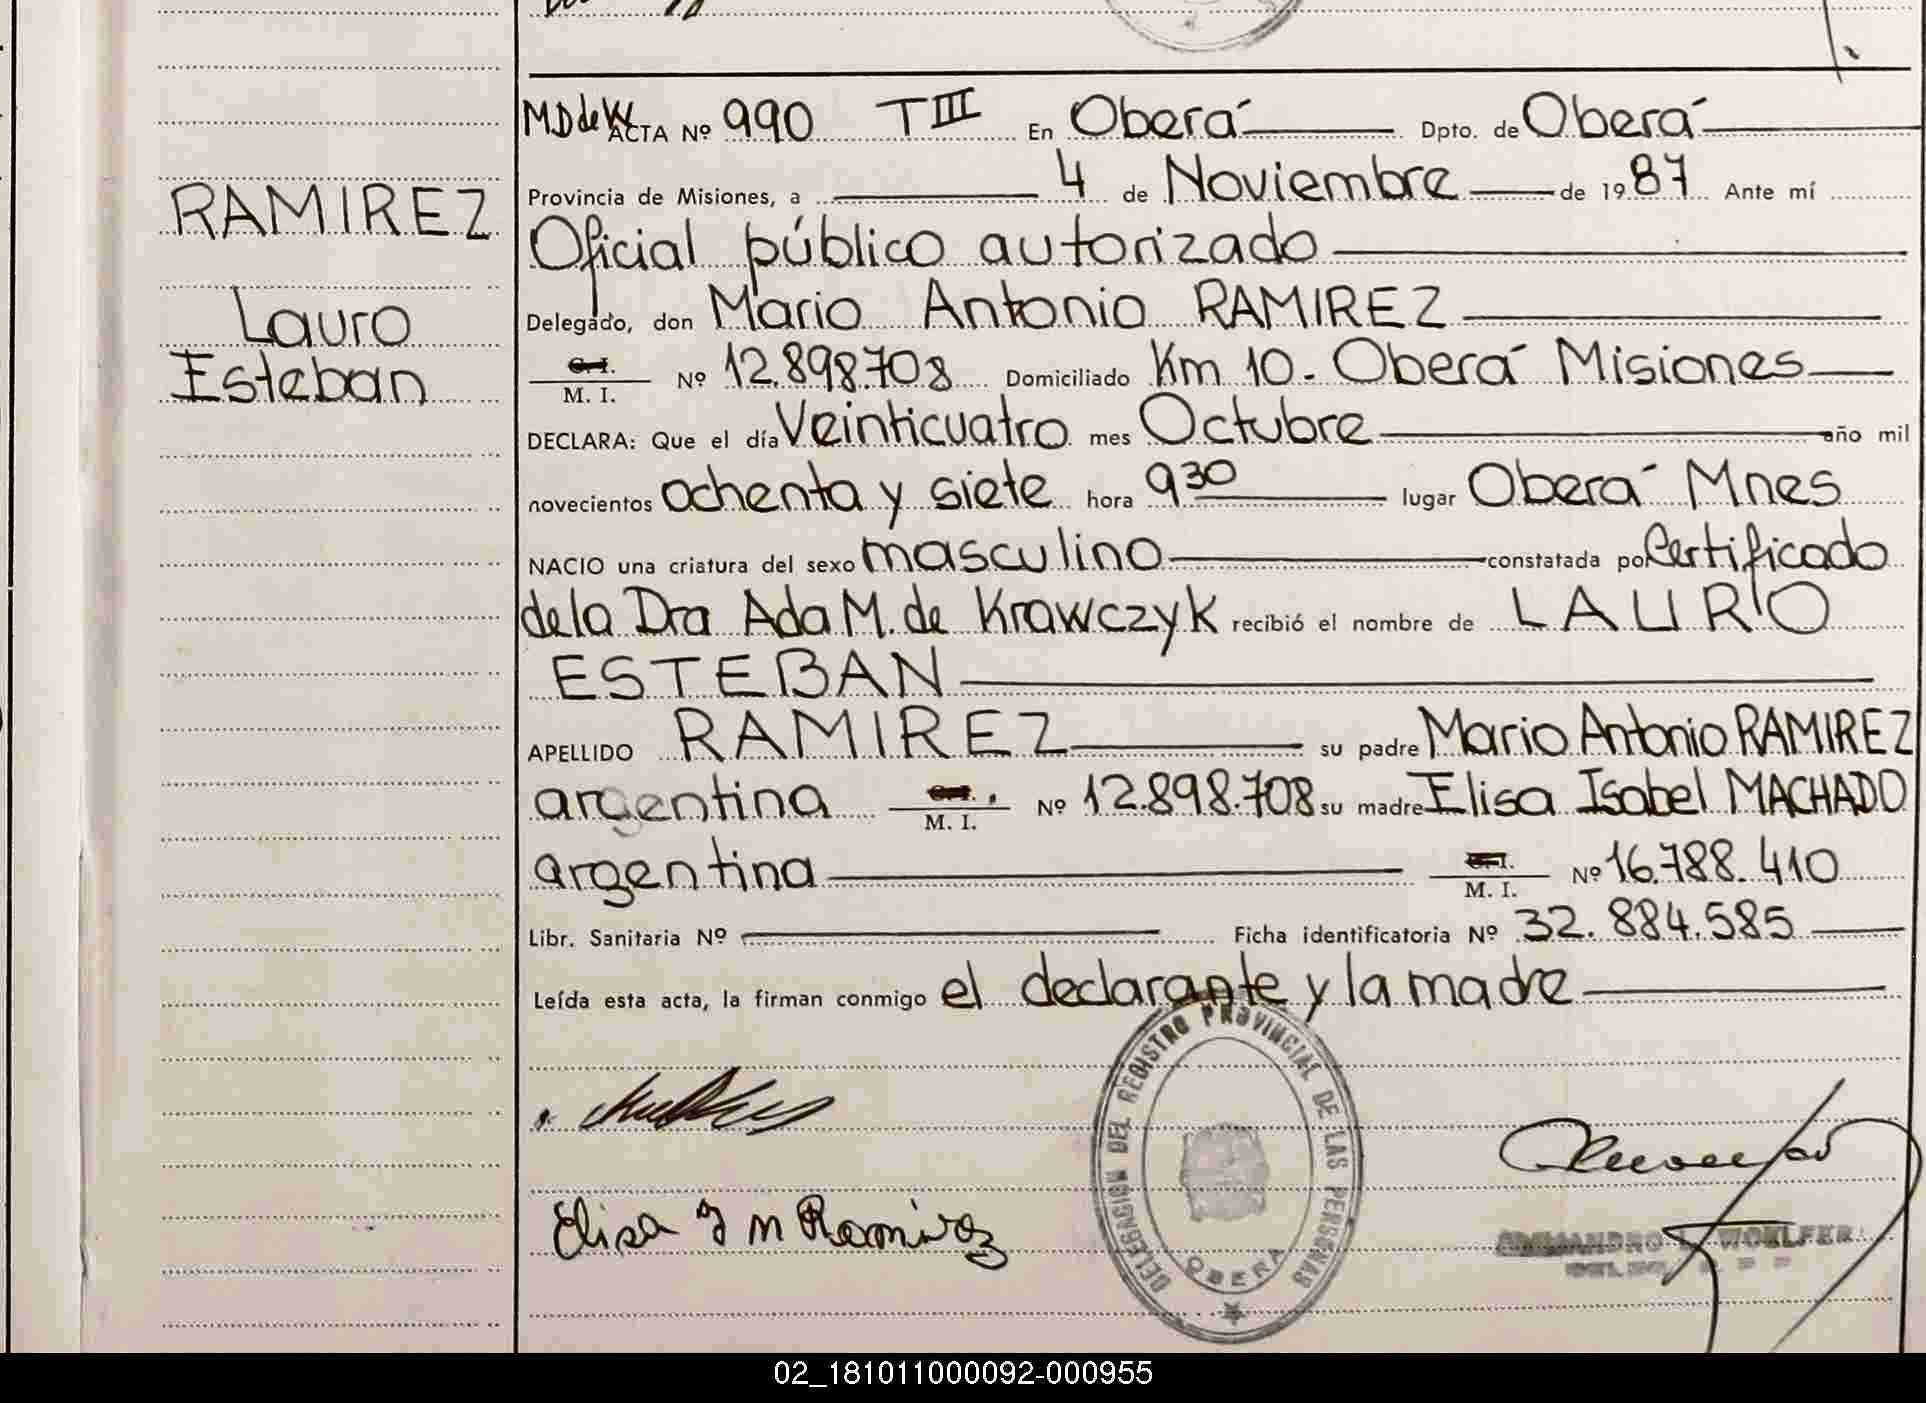 RAMIREZ
Lauro
Esteban
M.D de W ACTA Nº 990 TIII En Oberá Dpto. de Oberá
Provincia de Misiones, a 4 de Noviembre de 1987 Ante mí
Oficial público autorizado
Delegado, don Mario Antonio RAMIREZ
M. I. Nº 12.898.708 Domiciliado Km 10. Oberá Misiones
DECLARA: Que el día Veinticuatro mes Octubre año mil
novecientos ochenta y siete hora 9 30 lugar Oberá Mnes
NACIO una criatura del sexo masculino constatada por Certificado
de la Dra Ada M. de Krawczyk recibió el nombre de LAURO
ESTEBAN
APELLIDO RAMIREZ su padre Mario Antonio RAMIREZ
argentina M. I. Nº 12.898.708 su madre Elisa Isabel MACHADO
argentina M. I. Nº 16.788.410
Libr. Sanitaria Nº Ficha identificatoria Nº 32.884.585
Leída esta acta, la firman conmigo el declarante y la madre
DELEGACION DEL REGISTRO PROVINCIAL DE LAS PERSONAS
OBERA
Elisa I M Ramirez
WOELFER
02_181011000092-000955